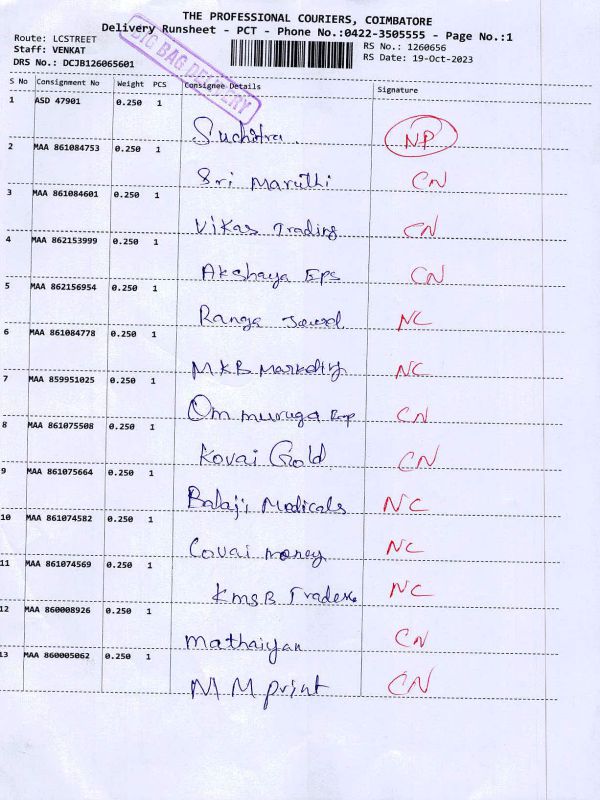 THE PROFESSIONAL COURIERS, COIMBATORE
Delivery Runsheet - PCT - Phone No.:0422-3505555 - Page No.:1
Route: LCSTREET
RS No.: 1260656
Staff: VENKAT
RS Date: 19-Oct-2023
DRS No.: DCJB126065601
BIG BAG DELIVERY
S No Consignment No Weight PCS Consignee Details Signature
1 ASD 47901 0.250 1
Suchitra. NP
2 MAA 861084753 0.250 1
Sri Maruthi CN
3 MAA 861084601 0.250 1
Vikas Trading CN
4 MAA 862153999 0.250 1
Akshaya Eps CN
5 MAA 862156954 0.250 1
Ranga NC
6 MAA 861084778 0.250 1
M.K.B NC
7 MAA 859951025 0.250 1
Om muruga CN
8 MAA 861075508 0.250 1
Kovai Gold CN
9 MAA 861075664 0.250 1
Balaji Medicals NC
10 MAA 861074582 0.250 1
Covai money NC
11 MAA 861074569 0.250 1
KmsB Traders NC
12 MAA 860008926 0.250 1
mathaiyan CN
13 MAA 860005062 0.250 1
M M print CN